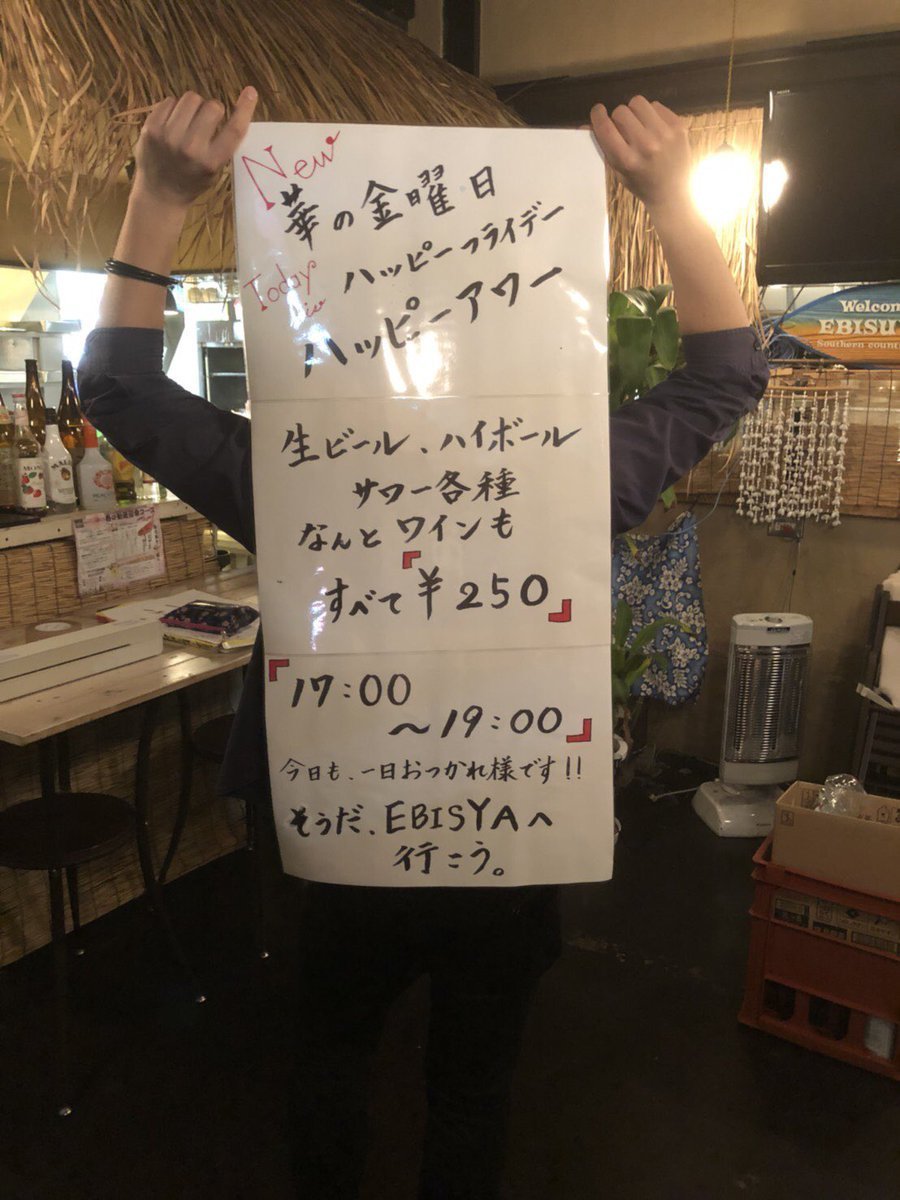 New
華の金曜日
Today
ハッピーフライデー
ハッピーアワー
生ビール、ハイボール
サワー各種
なんとワインも
すべて『¥250』
『17:00
〜19:00』
今日も、一日おつかれ様です!!
そうだ、EBISYAへ
行こう。
Welcom
EBISU
Southern county